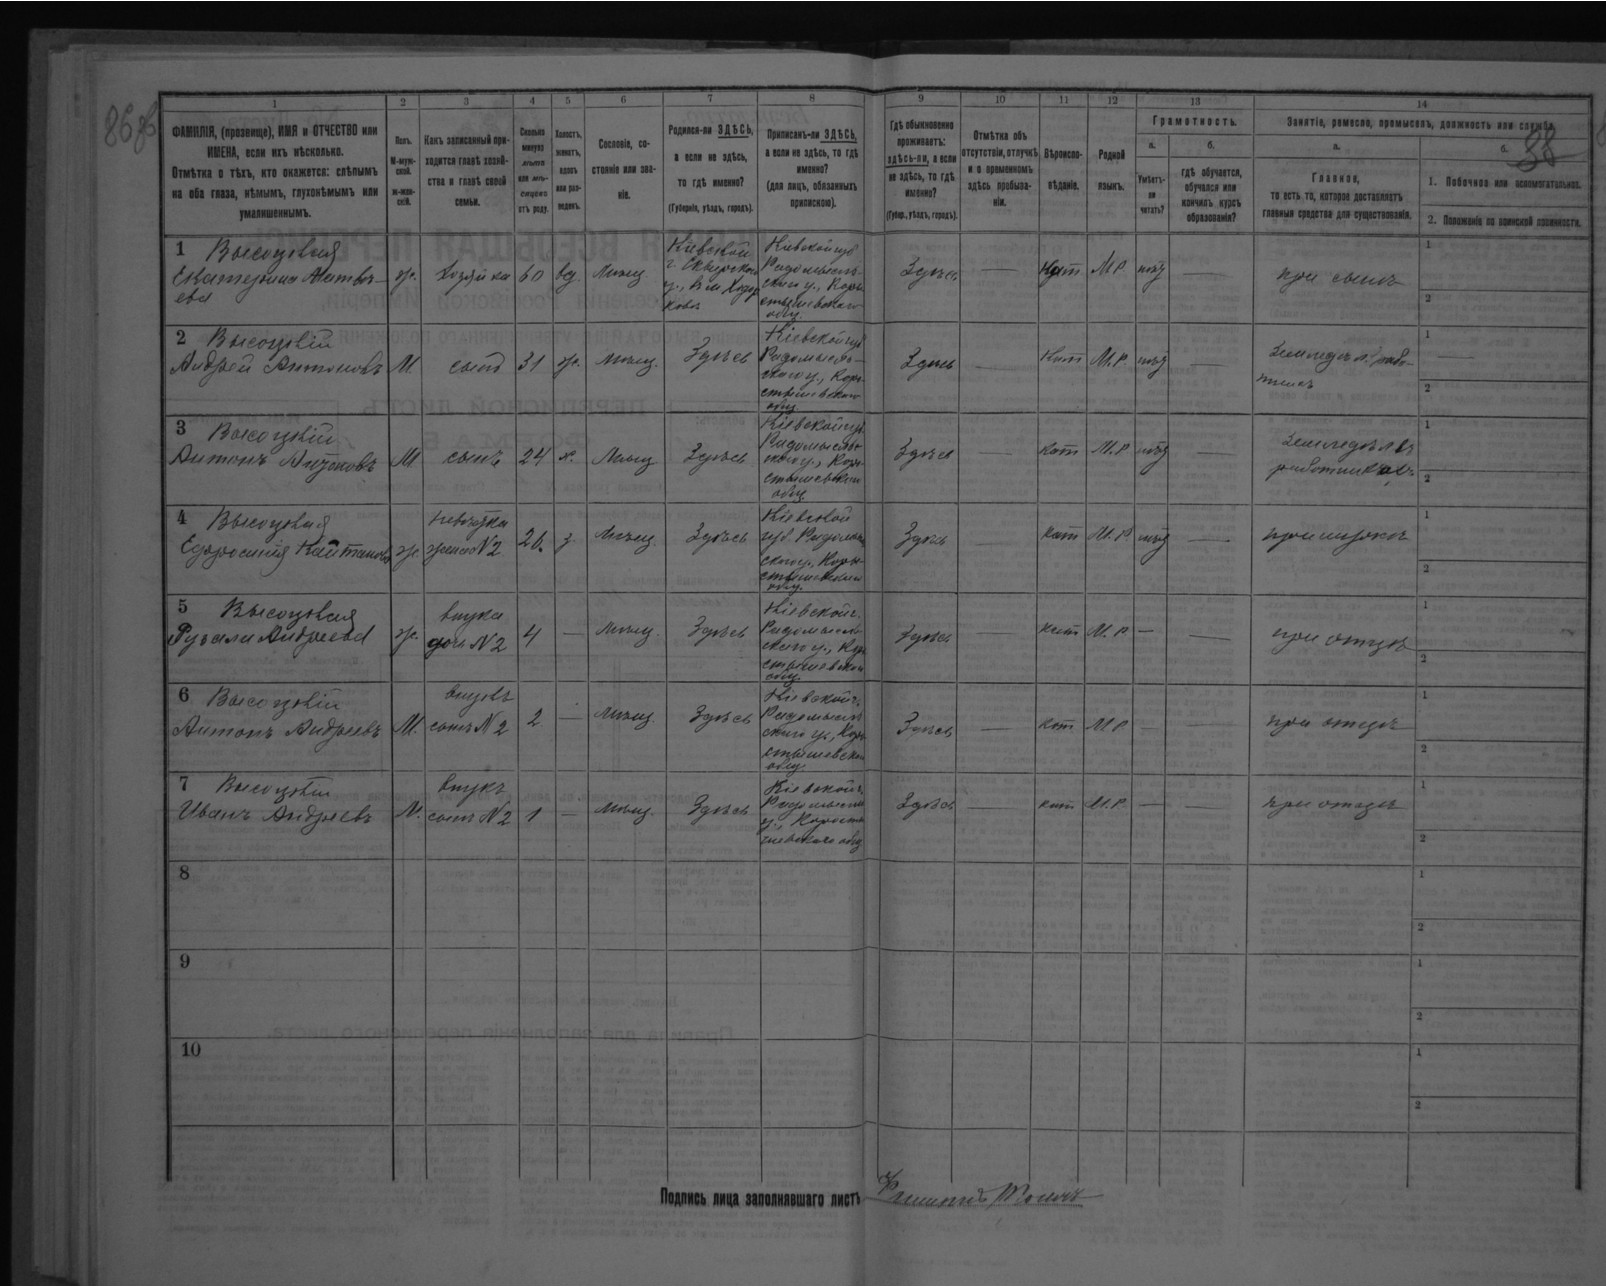 1
2
3
4
5
6
7
8
9
10
11
12
13
14
ФАМИЛІЯ, (прозвище), ИМЯ и ОТЧЕСТВО или
ИМЕНА, если ихъ нѣсколько.
Отмѣтка о тѣхъ, кто окажется: слѣпымъ
на оба глаза, нѣмымъ, глухонѣмымъ или
умалишеннымъ.
Полъ.
М-муж-
ской.
Ж-жен-
скій.
Какъ записанный при-
ходится главѣ хозяй-
ства и главѣ своей
семьи.
Сколько
минуло
лѣтъ
или мѣ-
сяцевъ
отъ роду.
Холостъ,
женатъ,
вдовъ
или раз-
веденъ.
Сословіе, со-
стояніе или зва-
ніе.
Родился-ли ЗДѢСЬ,
а если не здѣсь,
то гдѣ именно?
(Губернія, уѣздъ, городъ).
Приписанъ-ли ЗДѢСЬ,
а если не здѣсь, то гдѣ
именно?
(для лицъ, обязанныхъ
припискою).
Гдѣ обыкновенно
проживаетъ:
здѣсь-ли, а если
не здѣсь, то гдѣ
именно?
(Губер., уѣздъ, городъ).
Отмѣтка объ
отсутствіи, отлучкѣ
и о временномъ
здѣсь пребыва-
ніи.
Вѣроиспо-
вѣданіе.
Родной
языкъ.
Грамотность.
а.
Умѣетъ-
ли
читать?
б.
гдѣ обучается,
обучался или
кончилъ курсъ
образованія?
Занятіе, ремесло, промыселъ, должность или служба.
а.
Главное,
то есть то, которое доставляетъ
главныя средства для существованія.
б.
38
1. Побочное или вспомогательное.
2. Положеніе по воинской повинности.
1 Высоцкая
Екатерина Матвѣ-
ева
ж.
хозяйка
60
вд.
Мѣщ.
Кіевской
г. Сквирскаго
у.,
Кіевской губ
Радомысль-
скаго у., Коро-
стышевскаго
общ.
Здѣсь
—
Кат
М.Р.
нѣт
—
при сынѣ
1
2
2 Высоцкій
Андрей Антоновъ
М.
сынъ
31
ж.
Мѣщ.
Здѣсь
Кіевской губ
Радомысль-
скаго у., Коро-
стышевскаго
общ
Здѣсь
—
Кат
М.Р.
нѣт
—
1
—
2
3 Высоцкій
Антонъ Антоновъ
М
сынъ
24
х.
Мѣщ
Здѣсь
Кіевской губ.
Радомысль-
скаго у., Коро-
стышевскаго
общ.
Здѣсь
—
Кат
М.Р.
нѣт
—
1
2
4 Высоцкая
Ефросинія Каитанова
ж.
невѣстка
жена N2
26.
з.
Мѣщ.
Здѣсь
Кіевской
губ. Радомысль
скаго у., Коро-
стышевскаго
общ.
Здѣсь
—
Кат
М.Р.
нѣт
—
при мужѣ
1
2
5 Высоцкая
Андреева
ж.
внука
дочь N2
4
—
Мѣщ.
Здѣсь
Кіевской г.
Радомысль-
скаго у., Коро
стышевскаго
общ.
Здѣсь
Кат
М.Р.
—
—
при отцѣ
1
2
6 Высоцкій
Антонъ Андреевъ
М.
внукъ
сынъ N2
2
—
Мѣщ
Здѣсь
Кіевской г.
Радомысль
скаго у., Коро
стышевскаго
общ.
Здѣсь
—
Кат
М.Р.
—
при отцѣ
1
2
7 Высоцкій
Иванъ Андреевъ
М.
внукъ
сынъ N2
1
—
Мѣщ.
Здѣсь
Кіевской г.
Радомысль
у., Корости
шевскаго общ
Здѣсь
—
Кат
М.Р.
—
—
при отцѣ
1
2
8
1
2
9
1
2
10
1
2
Подпись лица заполнявшаго листъ